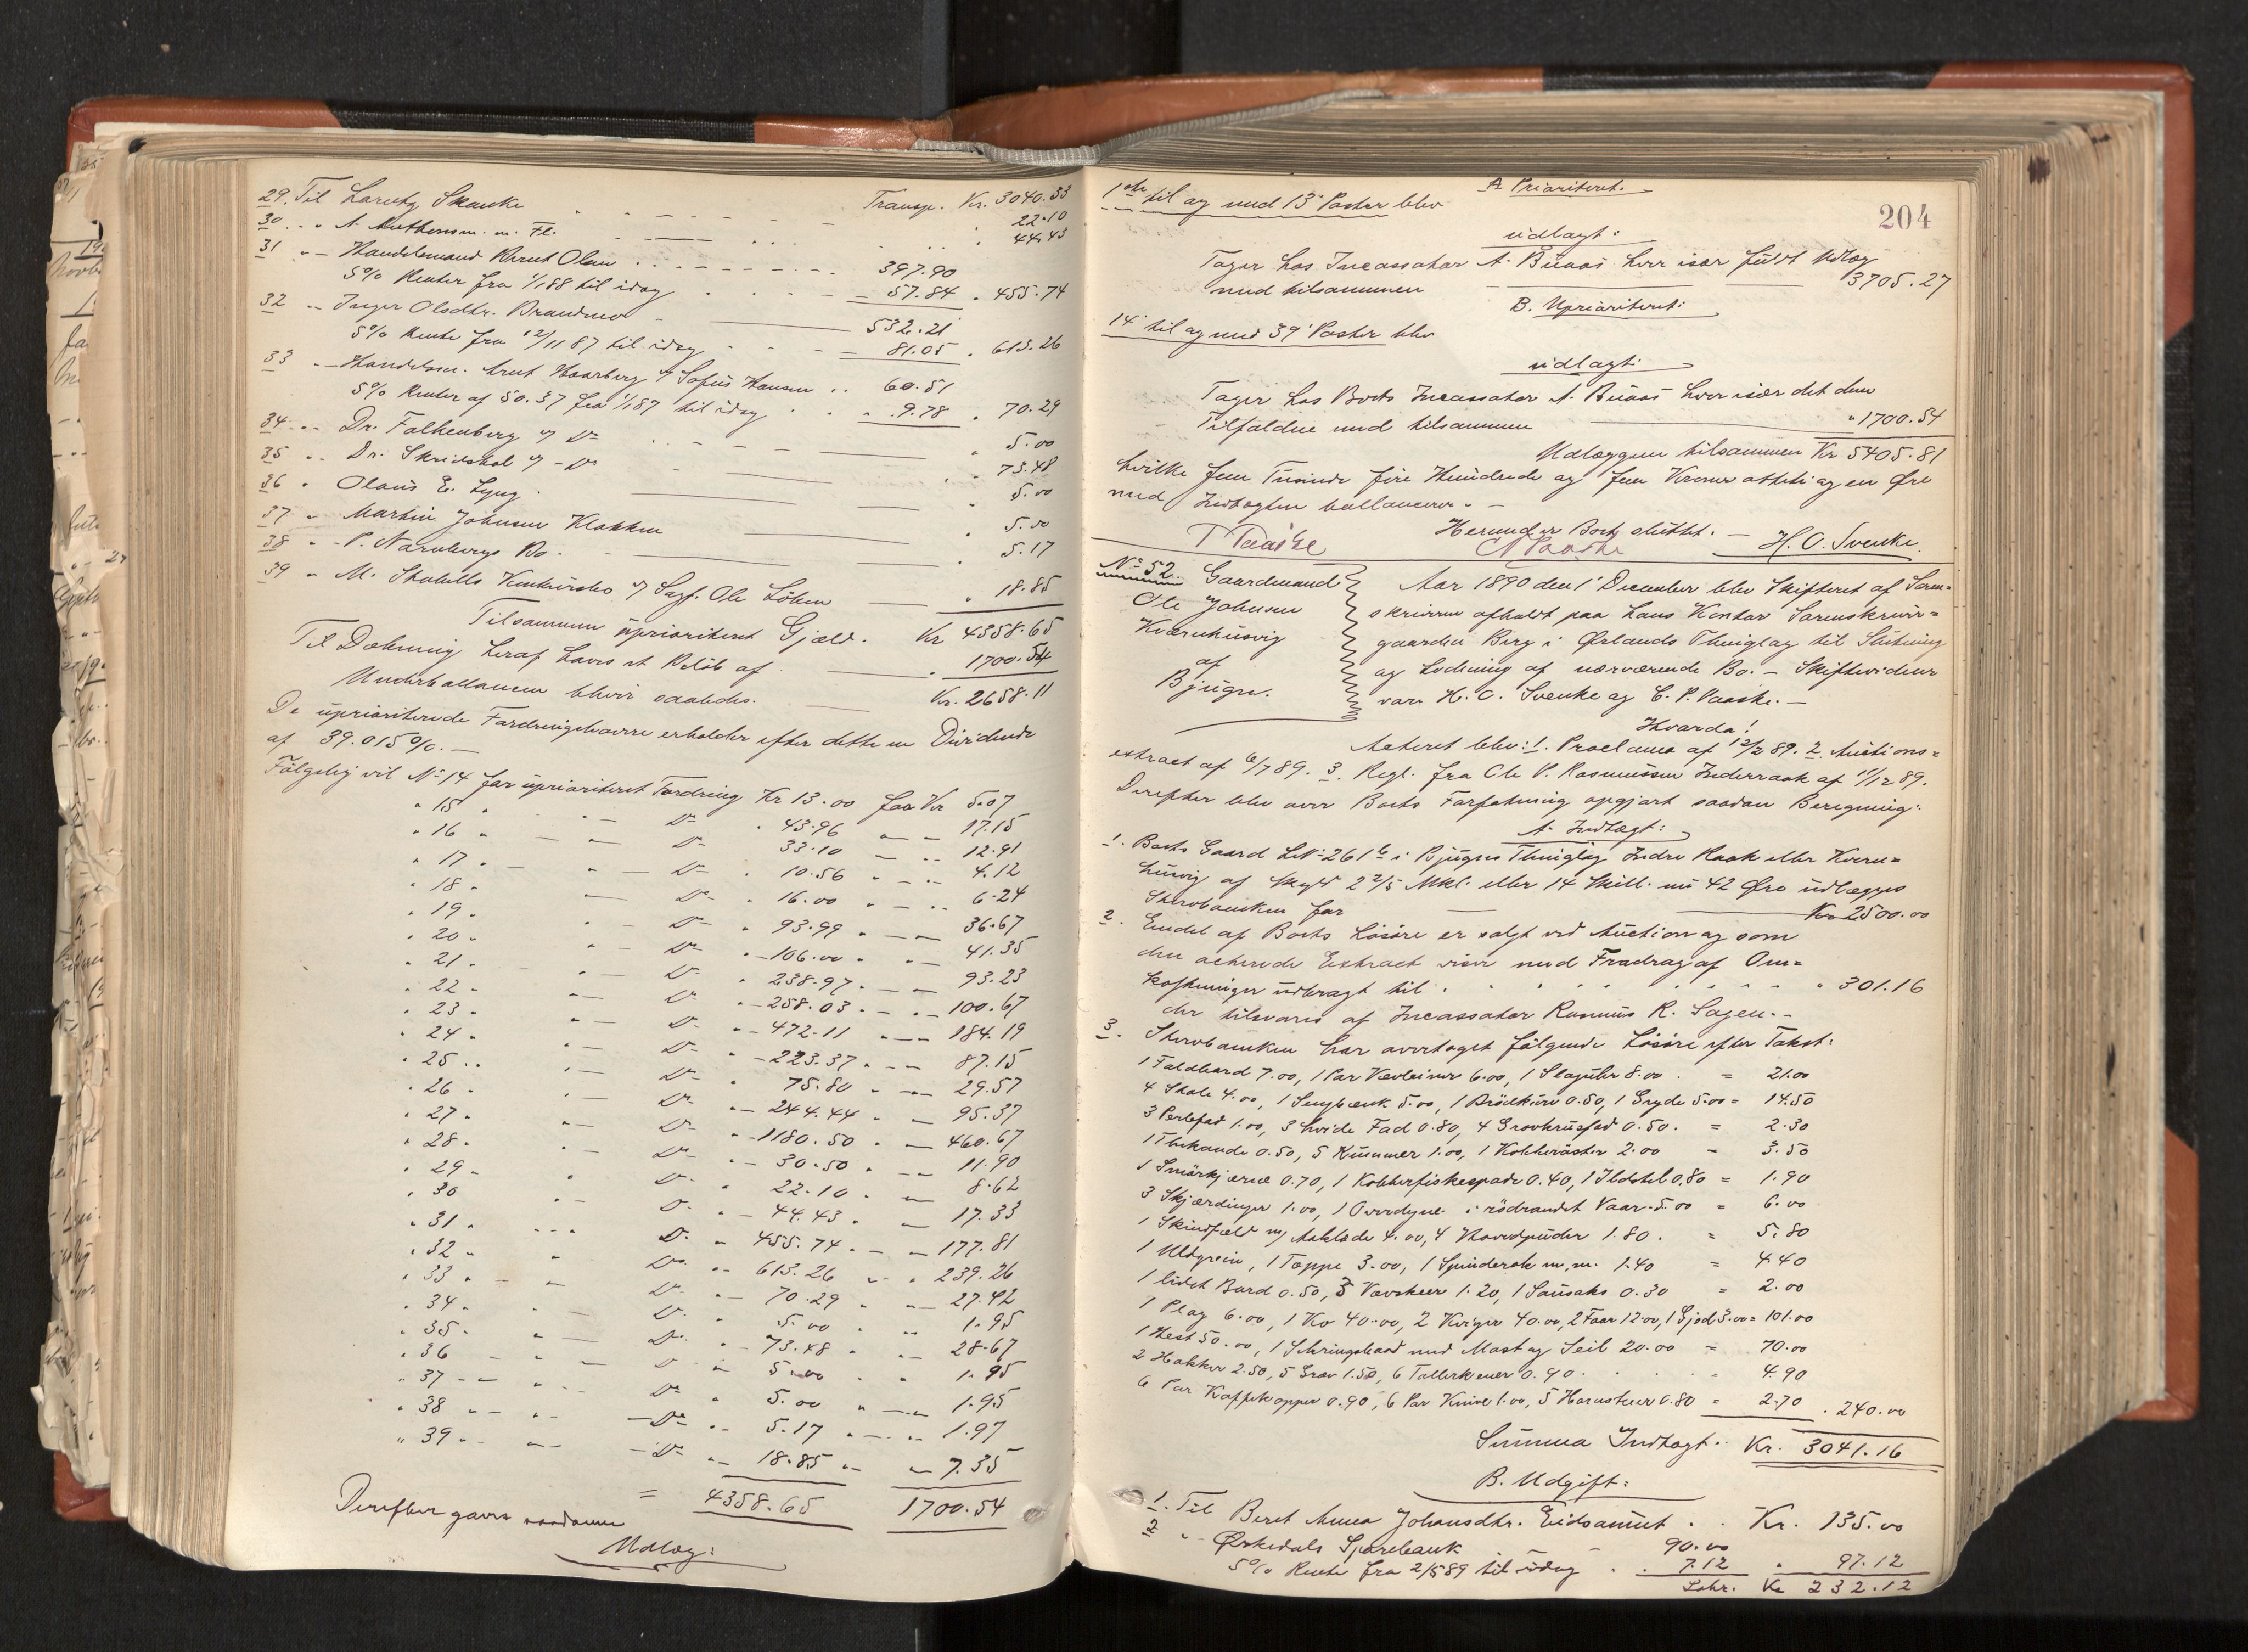 29. Til Lærebg Skauke - - - - Transp. Kr. 3040.33
22.10
30 . . „ A. Mathensen m. Fl. - - - 44.43
31 „ – Handelsmand Knut Olsen . . - - - 397.90
5% Renter fra 1/1 88 til idag . . - - 57.84 . 455.74
32 „ Inger Olsdtr. Brandmo - 532.21
5% Rente fra 12/11 87 til idag - - - 81.05 . 613.26
33 „ – Handelsm. Knut Haarberg v/ Sofus Hansen . . 60.51
5% Renter af 50.37 fra 1/1 87 til idag . . „ 9.78 . 70.29
34 . . „ Dr. Falkenberg v/ Do - - „ 5.00
35 „ . . Dr. Skridshol v/ – Do - „ 73.48
36 „ Olaus E. Lyng . „ 5.00
37 „ Martin Johnsen Klakken „ 5.00
38 „ – P. Narvbergs Bo . „ 5.17
39 „ M. Skatvolls Konkursbo v/ Sagf. Ole Löken „ 18.85
Tilsammen uprioriteret Gjæld . Kr 4358.65
Til Dækning heraf haves et Beløb af . 1700.54
Underballancen bliver saaledes . Kr. 2658.11
De uprioriterede Fordringshavere erholder efter dette en Dividende
af 39.015 %. –
Følgelig vil No 14 for uprioriteret Fordring Kr 13.00 faa Kr 5.07
„ 15 „ Do „ 43.96 „ – 17.15
„ 16 „ – – Do 33.10 – „ 12.91
„ 17 „ – – Do „ 10.56 „ – „ 4.12
„ 18 „ – Do „ 16.00 „ – „ 6.24
„ 19 „ Do „ 93.99 „ – 36.67
„ 20 „ „ Do „ – 106.00 „ „ – 41.35
„ 21 „ – „ – Do „ 238.97 „ – 93.23
„ 22 „ „ – Do „ – 258.03 „ – „ – 100.67
„ 23 „ „ – Do „ – 472.11 „ – 184.19
„ 24 „ „ – Do „ – 223.37 „ – 87.15
„ 25 „ „ „ – Do „ 75.80 „ – 29.57
„ 26 „ „ – Do „ – 244.44 „ – 95.37
„ 27 „ „ – Do „ – 1180.50 „ – 460.67
„ 28 „ „ – Do „ – 30.50 „ – 11.90
„ 29 „ „ – Do „ 22.10 „ – 8.62
„ 30 „ – Do „ – 44.43 „ – 17.33
„ 31 „ – – – Do „ 455.74 „ – – 177.81
„ 32 „ „ Do „ – 613.26 „ „ 239.26
„ 33 „ – – Do „ – 70.29 „ – 27.42
„ 34 „ – „ Do „ 5.00 „ „ 1.95
„ 35 „ „ – Do „ – 73.48 „ – 28.67
„ 36 – „ – Do „ 5.00 „ „ 1.95
„ 37 – „ – „ Do „ 5.00 „ – 1.95
„ 38 „ – „ – Do „ 5.17 „ – „ 1.97
„ 39 „ – „ – Do „ 18.85 „ – 7.35
= 4358.65 1700.54
Derefter gaves saadanne
Udlæg:
A Prioriteret. –
204
1ste til og med 13' Poster blev
udlagt:
Tager hos Incassator A. Buaas hver især fuldt Udlæg
med tilsammen 3705.27
B. Uprioriteret:
14' til og med 39' Poster blev
udlagt:
Tager hos Boets Incassator A. Buaas hver især det dem
Tilfaldne med tilsammen „ 1700.54
Udlæggene tilsammen Kr 5405.81
hvilke fem Tusinde fire Hundrede og fem Kroner otteti og en Øre
med Indtægten ballancerer. –
Herunder Boets sluttet. –
T Paaske C P Paaske H. O. Svenke
No 52. Gaardmand
Ole Johnsen
Kværnhusvig
af
Bjugn.
Aar 1890 den 1' December blev Skifteret af Soren=
skriveren afholdt paa hans Kontor Sorenskriver=
gaarden Berg i Ørlands Thinglag til Slutning
og Lodning af nærværende Bo. – Skiftevidner
vare H. O. Svenke og C. P. Paaske. –
Hvorda!
Acteret blev: 1. Proclama af 12/2 89. 2. Auctions=
extract af 6/7 89. 3. Regl. fra Ole P. Rasmussen Inderraak af 11/12 89.
Derefter blev over Boets Forfatning opgjort saadan Beregning:
A. Indtægt:
1. Boets Gaard LNo 261 b i Bjugns Thinglag Indre Raak eller Kvern=
husvig af Skyld 2 2/5 Mkl. eller 14 Skill. nu 42 Øre udlægges
Sterboenken for Kr 2500.00
2. Endel af Boets Løsøre er solgt ved Auction og som
den acterede Extract viser med Fradrag af Om=
kostninger udbragt til . „ 301.16
der tilsvares af Incassator Rasmus R. Sagen. –
3. Sterboenken har overtaget følgende Løsøre efter Takst:
1 Foldbord 7.00, 1 Par Vævbeiner 6.00, 1 Slaguhr 8.00 . = 21.00
4 Stole 4.00, 1 Sengbænk 5.00, 1 Brödkurv 0.50, 1 Gryde 5.00 = 14.50
3 Perlefad 1.00, 3 hvide Fad 0.80, 4 Grovkrusfad 0.50 . = 2.30
1 Thekande 0.50, 5 Kummer 1.00, 1 Kobberöster 2.00 = 3.50
1 Smörkjærne 0.70, 1 Kobberfiskespade 0.40, 1 Ildstel 0.80 = 1.90
3 Skjærdinger 1.00, 1 Overdyne i rödrandet Vaar 5.00 = 6.00
1 Skindfeld m/ Aaklæde 4.00, 4 Hovedpuder 1.80 . = 5.80
1 Uldgrein, 1 Toppe 3.00, 1 Spinderok m. m. 1.40 = 4.40
1 lidet Bord 0.50, 3 Vævskeer 1.20, 1 Sausaks 0.30 = 2.00
1 Plog 6.00, 1 Ko 40.00, 2 Kviger 40.00, 2 Faar 12.00, 1 Gjed 3.00 = 101.00
1 Hest 50.00, 1 Seksringsbaad med Mast og Seil 20.00 = 70.00
2 Hakker 2.50, 5 Grev 1.50, 6 Tallerkener 0.90 . . . . 4.90
6 Par Kaffekopper 0.90, 6 Par Knive 1.00, 5 Hornskeer 0.80 = 2.70 . 240.00
Summa Indtægt . Kr. 3041.16
B. Udgift:
1. Til Beret Anna Johansdtr. Eidsaunet . . Kr. 135.00
2 „ Ørkedals Sparebank 90.00
5% Rente fra 2/5 89 til idag . . 7.12 „ 97.12
Latr. Kr 232.12